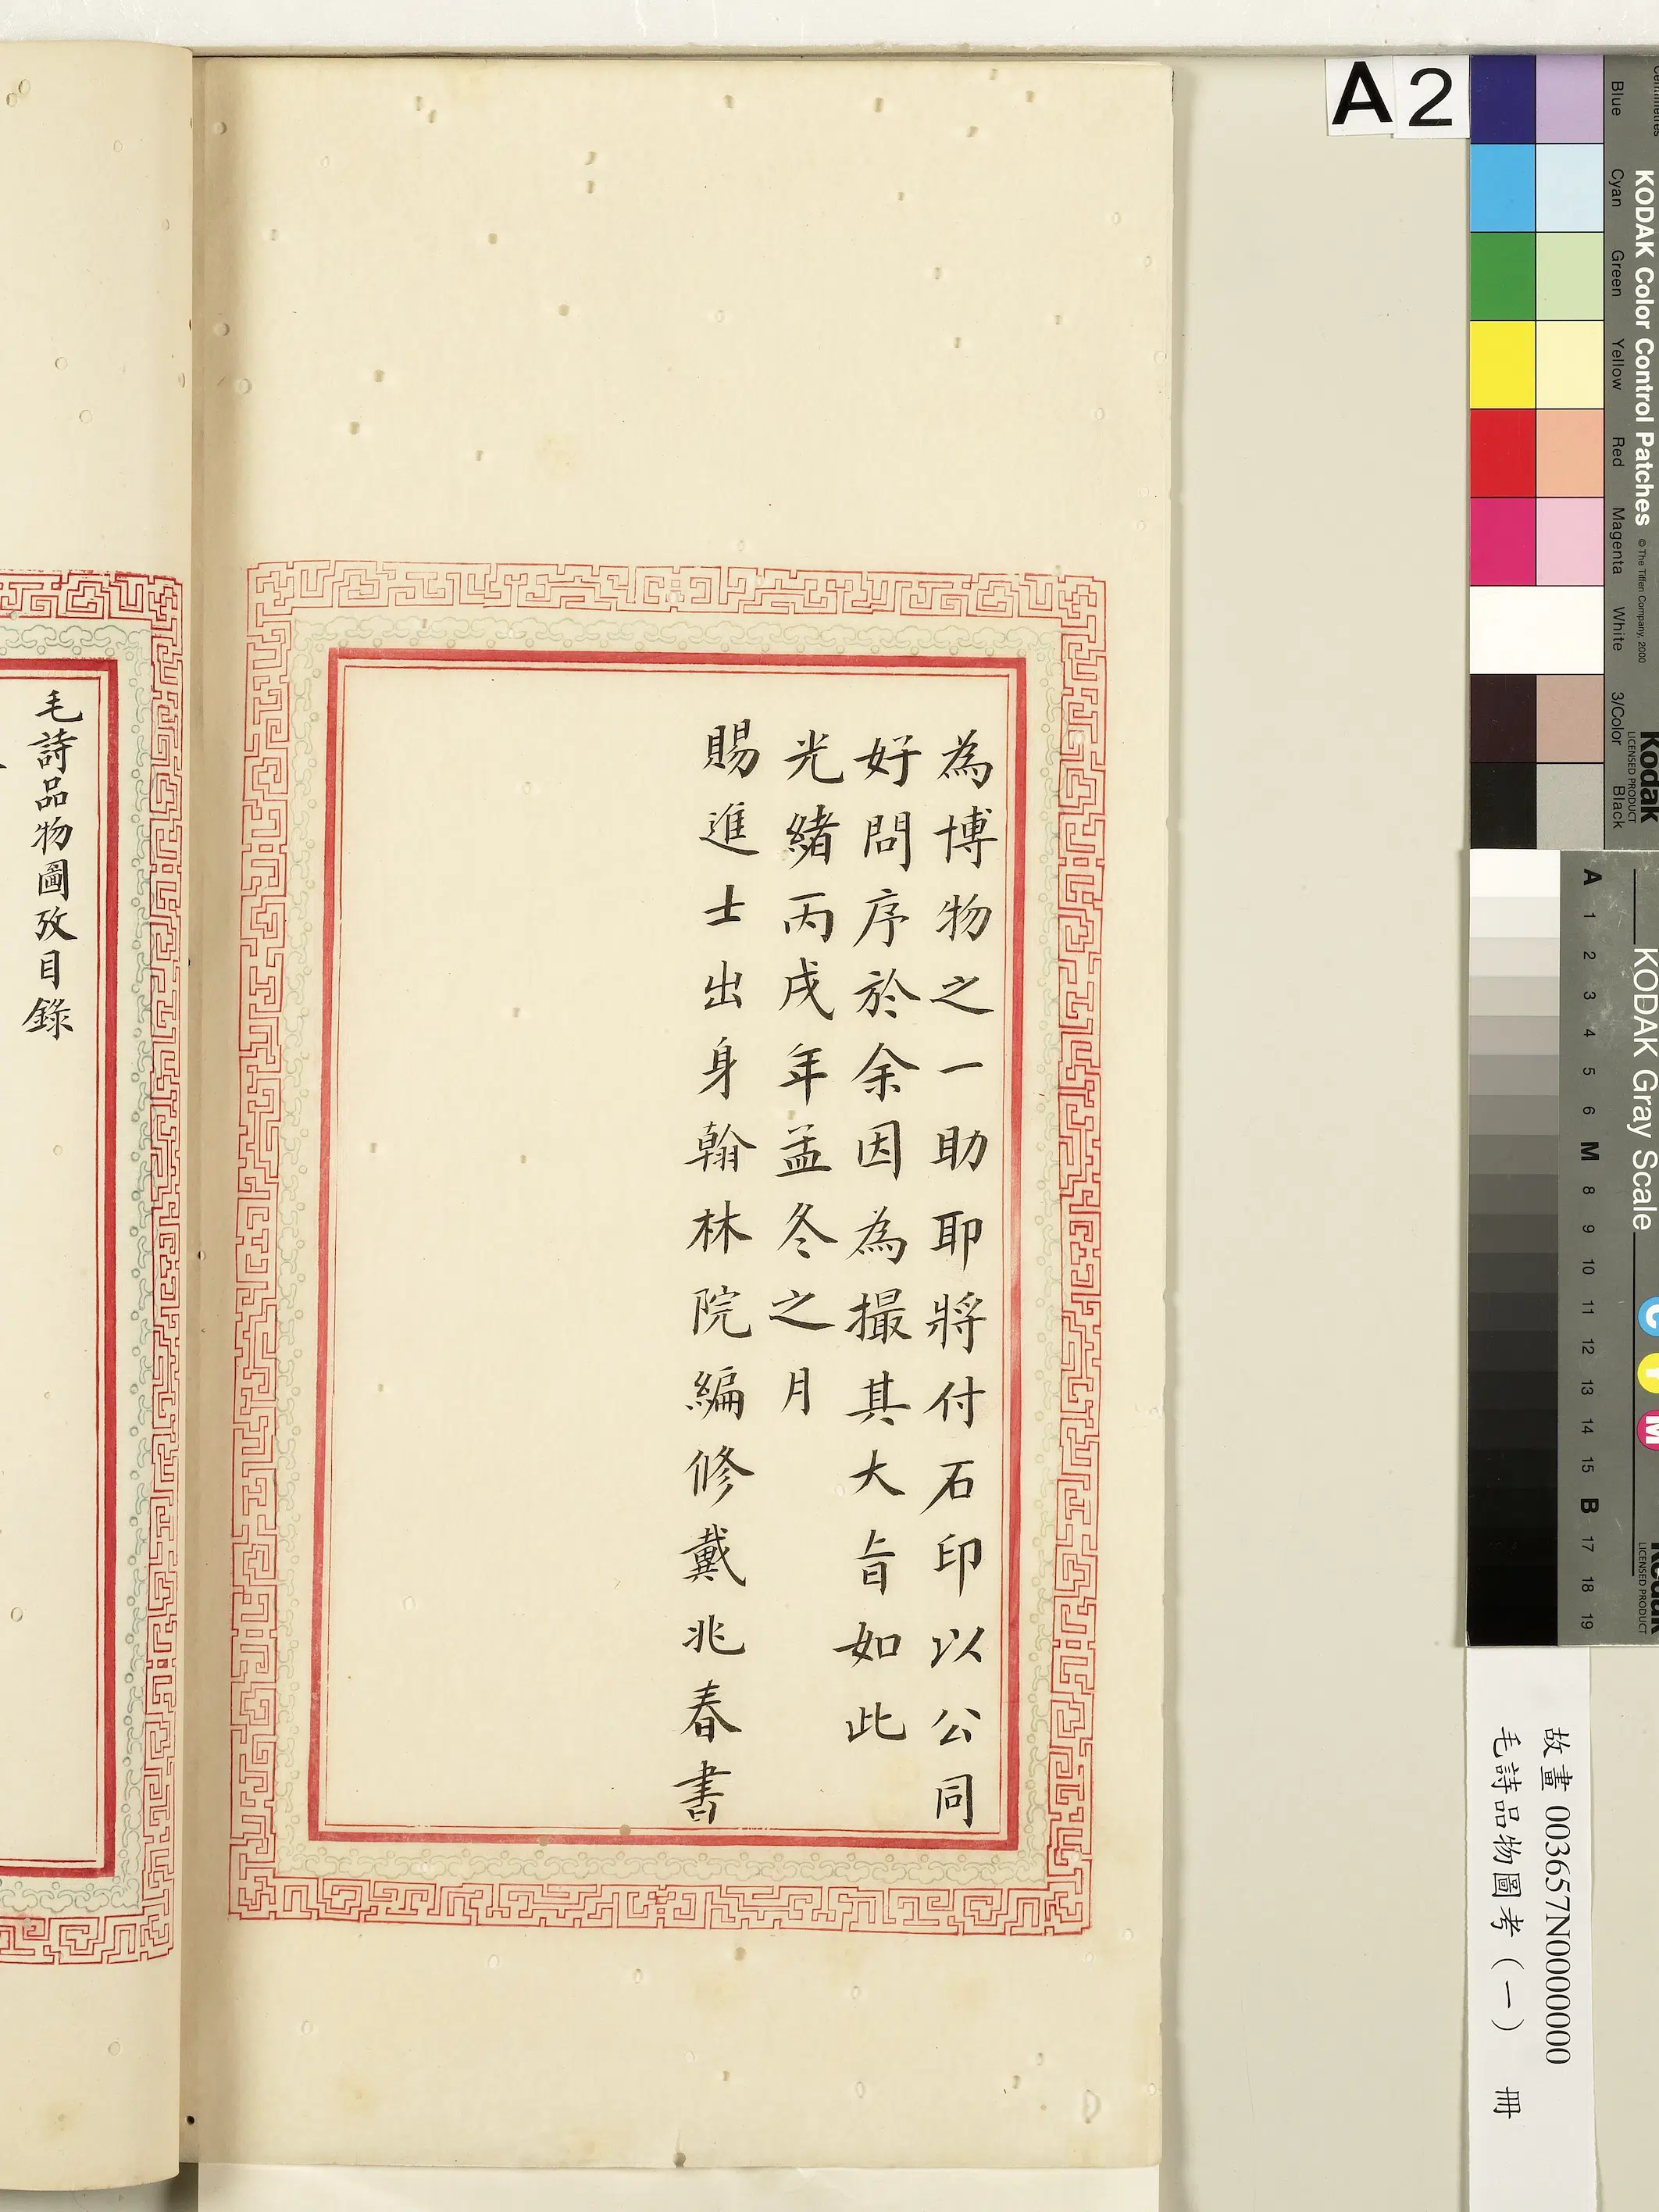 為博物之一助耶將付石印以公同
好問序於余因為撮其大旨如此
光緒丙戌年孟冬之月
賜進士出身翰林院編修戴兆春書
毛詩品物圖攷目錄
A2
KODAK Color Control Patches
© The Tiffen Company, 2000
Kodak
LICENSED PRODUCT
Blue
Cyan
Green
Yellow
Red
Magenta
White
3/Color
Black
KODAK Gray Scale
C
Y
M
LICENSED PRODUCT
A 1 2 3 4 5 6 M 8 9 10 11 12 13 14 15 B 17 18 19
故畫 003657N000000000
毛詩品物圖考（一） 冊